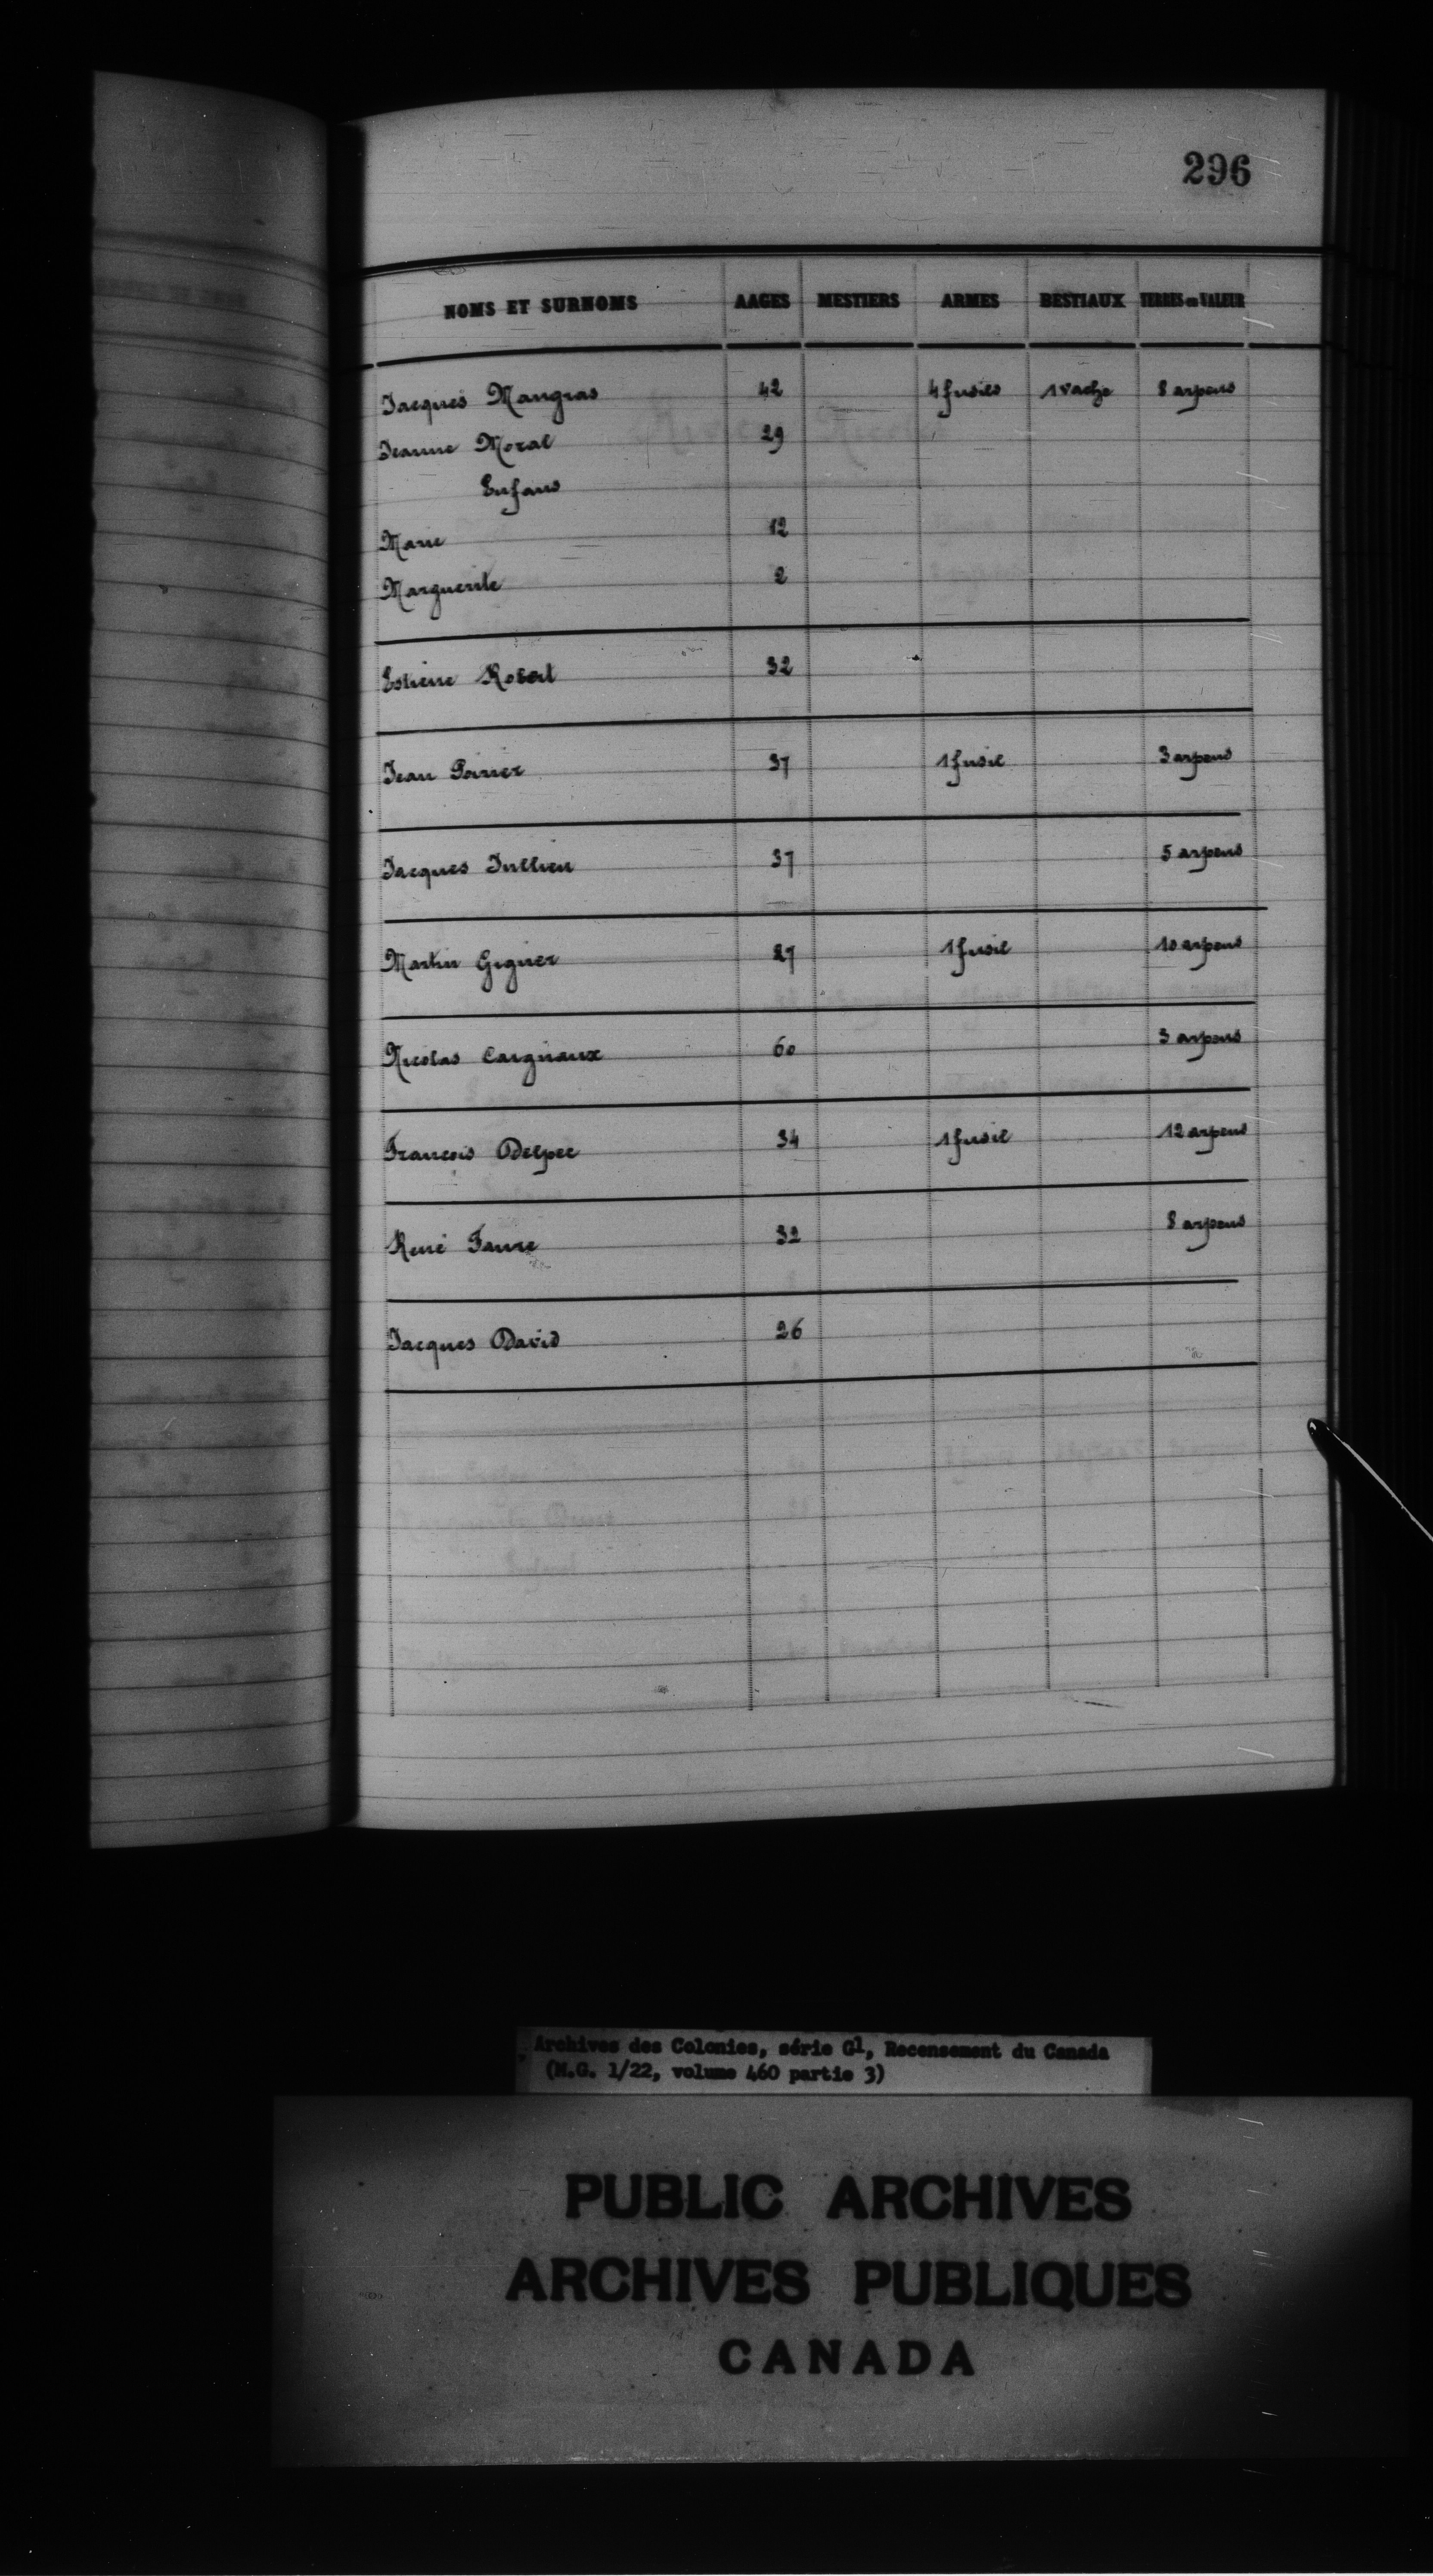 296
NOMS ET SURNOMS AAGES MESTIERS ARMES BESTIAUX TERRES en VALEUR
Jacques Maugras 42 4 fusils 1 vache 8 arpens
Jeanne Moral 29
Enfans
Marie 12
Marguerite 2
Estienne Robert 32
Jean Poirier 37 1 fusil 3 arpens
Jacques Jullien 37 5 arpens
Martin Giguier 27 1 fusil 10 arpens
Nicolas 60 3 arpens
Francois Delpec 34 1 fusil 12 arpens
René Faure 32 8 arpens
Jacques David 26
Archives des Colonies, série G1, Recensement du Canada
(M.G. 1/22, volume 460 partie 3)
PUBLIC ARCHIVES
ARCHIVES PUBLIQUES
CANADA